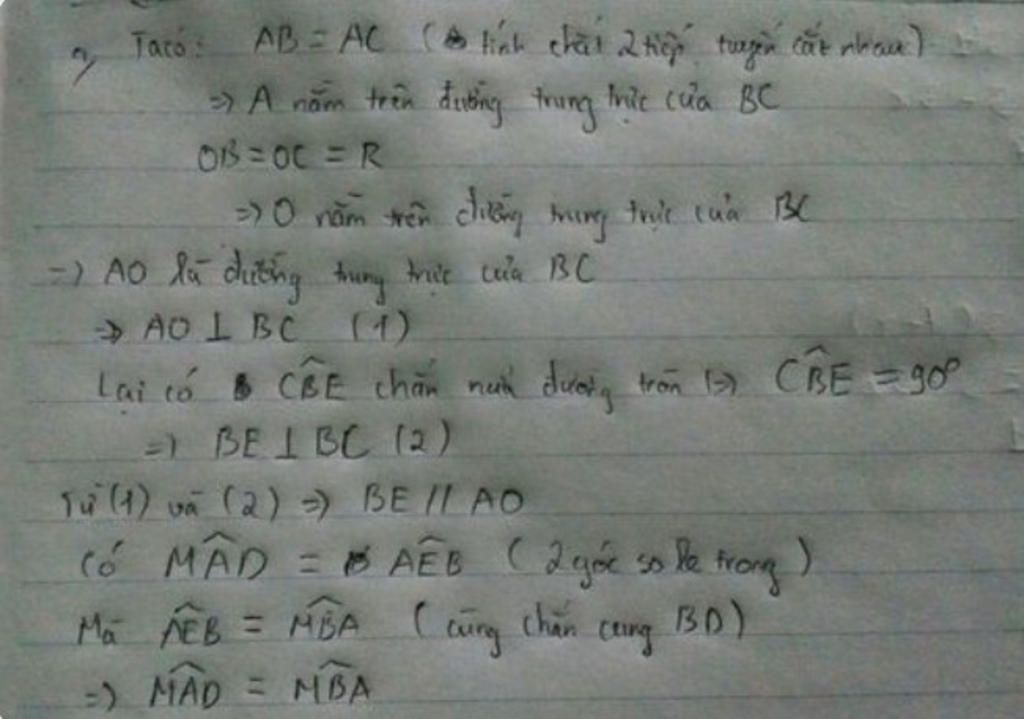 a, Ta có: AB = AC ( tính chất 2 tiếp tuyến cắt nhau)
=> A nằm trên đường trung trực của BC
OB = OC = R
=> O nằm trên đường trung trực của BC
=> AO là đường trung trực của BC
=> AO ⊥ BC (1)
Lại có CBE chắn nửa đường tròn => CBE = 90°
=> BE ⊥ BC (2)
Từ (1) và (2) => BE // AO
Có MAD = AEB ( 2 góc so le trong )
Mà AEB = MBA ( cùng chắn cung BD)
=> MAD = MBA